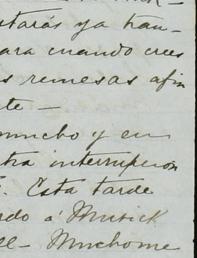 starás ya tran-
ara cuando crees
s remesas afin
te —
mucho y en
tra interrupcion
. Esta tarde
rdo á Musick
ll — Muchome